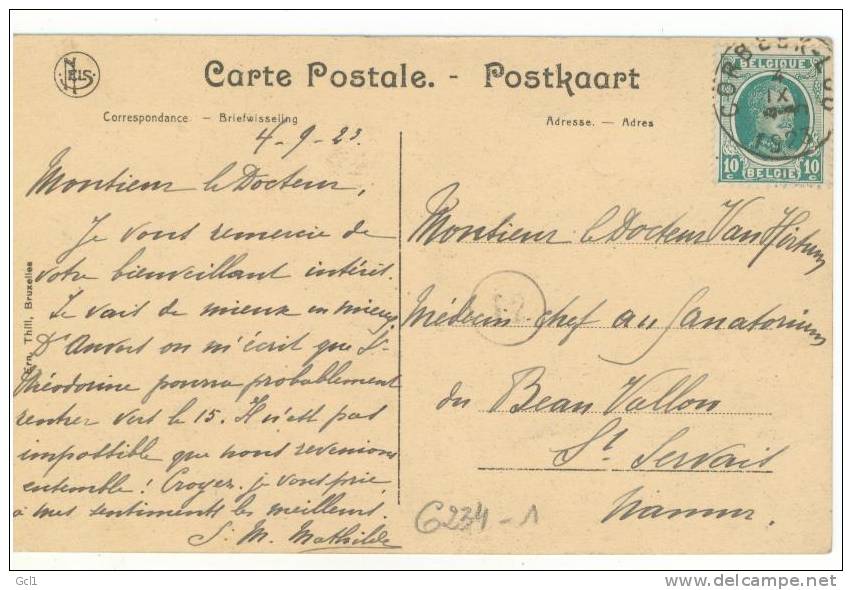 NELS
Carte Postale. - Postkaart
Correspondance. — Briefwisseling
Adresse. — Adres
BELGIQUE
10 c 10 c
BELGIË
CORBEEK-LOO
4
IX
1923
4-9-23.
Monsieur le Docteur,
Je vous remercie de
votre bienveillant intérêt.
Je vais de mieux en mieux.
D'Anvers on m'écrit que Sr
Théodorine pourra probablement
rentrer vers le 15. Il n'est pas
impossible que nous revenions
ensemble! Croyez, je vous prie,
à mes sentiments les meilleurs.
S. M. Mathilde
Monsieur le Docteur Van Hirtum
Médecin chef au Sanatorium
du Beau Vallon
St Servais
Namur.
Ern. Thill, Bruxelles
6234-1
Gcl1
delcampe.net